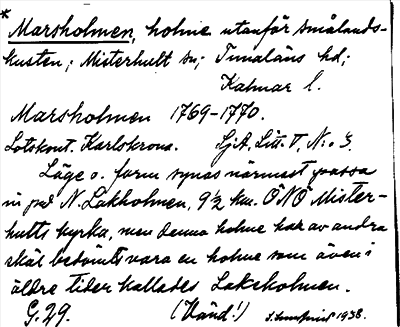 * Marsholmen, holme utanför smålands-
kusten; Misterhult sn; Tunaläns hd;
Kalmar l.
Marsholmen 1769-1770.
Lotskont. Karlskrona. Sj.A. Litt. V, N:o 3.
Läge o. form synas närmast passa
in på N. Lakholmen, 9½ km. ÖNÖ Mister-
hults kyrka, men denna holme har av andra
skäl bedömts vara en holme som även i
äldre tider kallades Lakeholmen.
G. 29. (Vänd!) 1938.